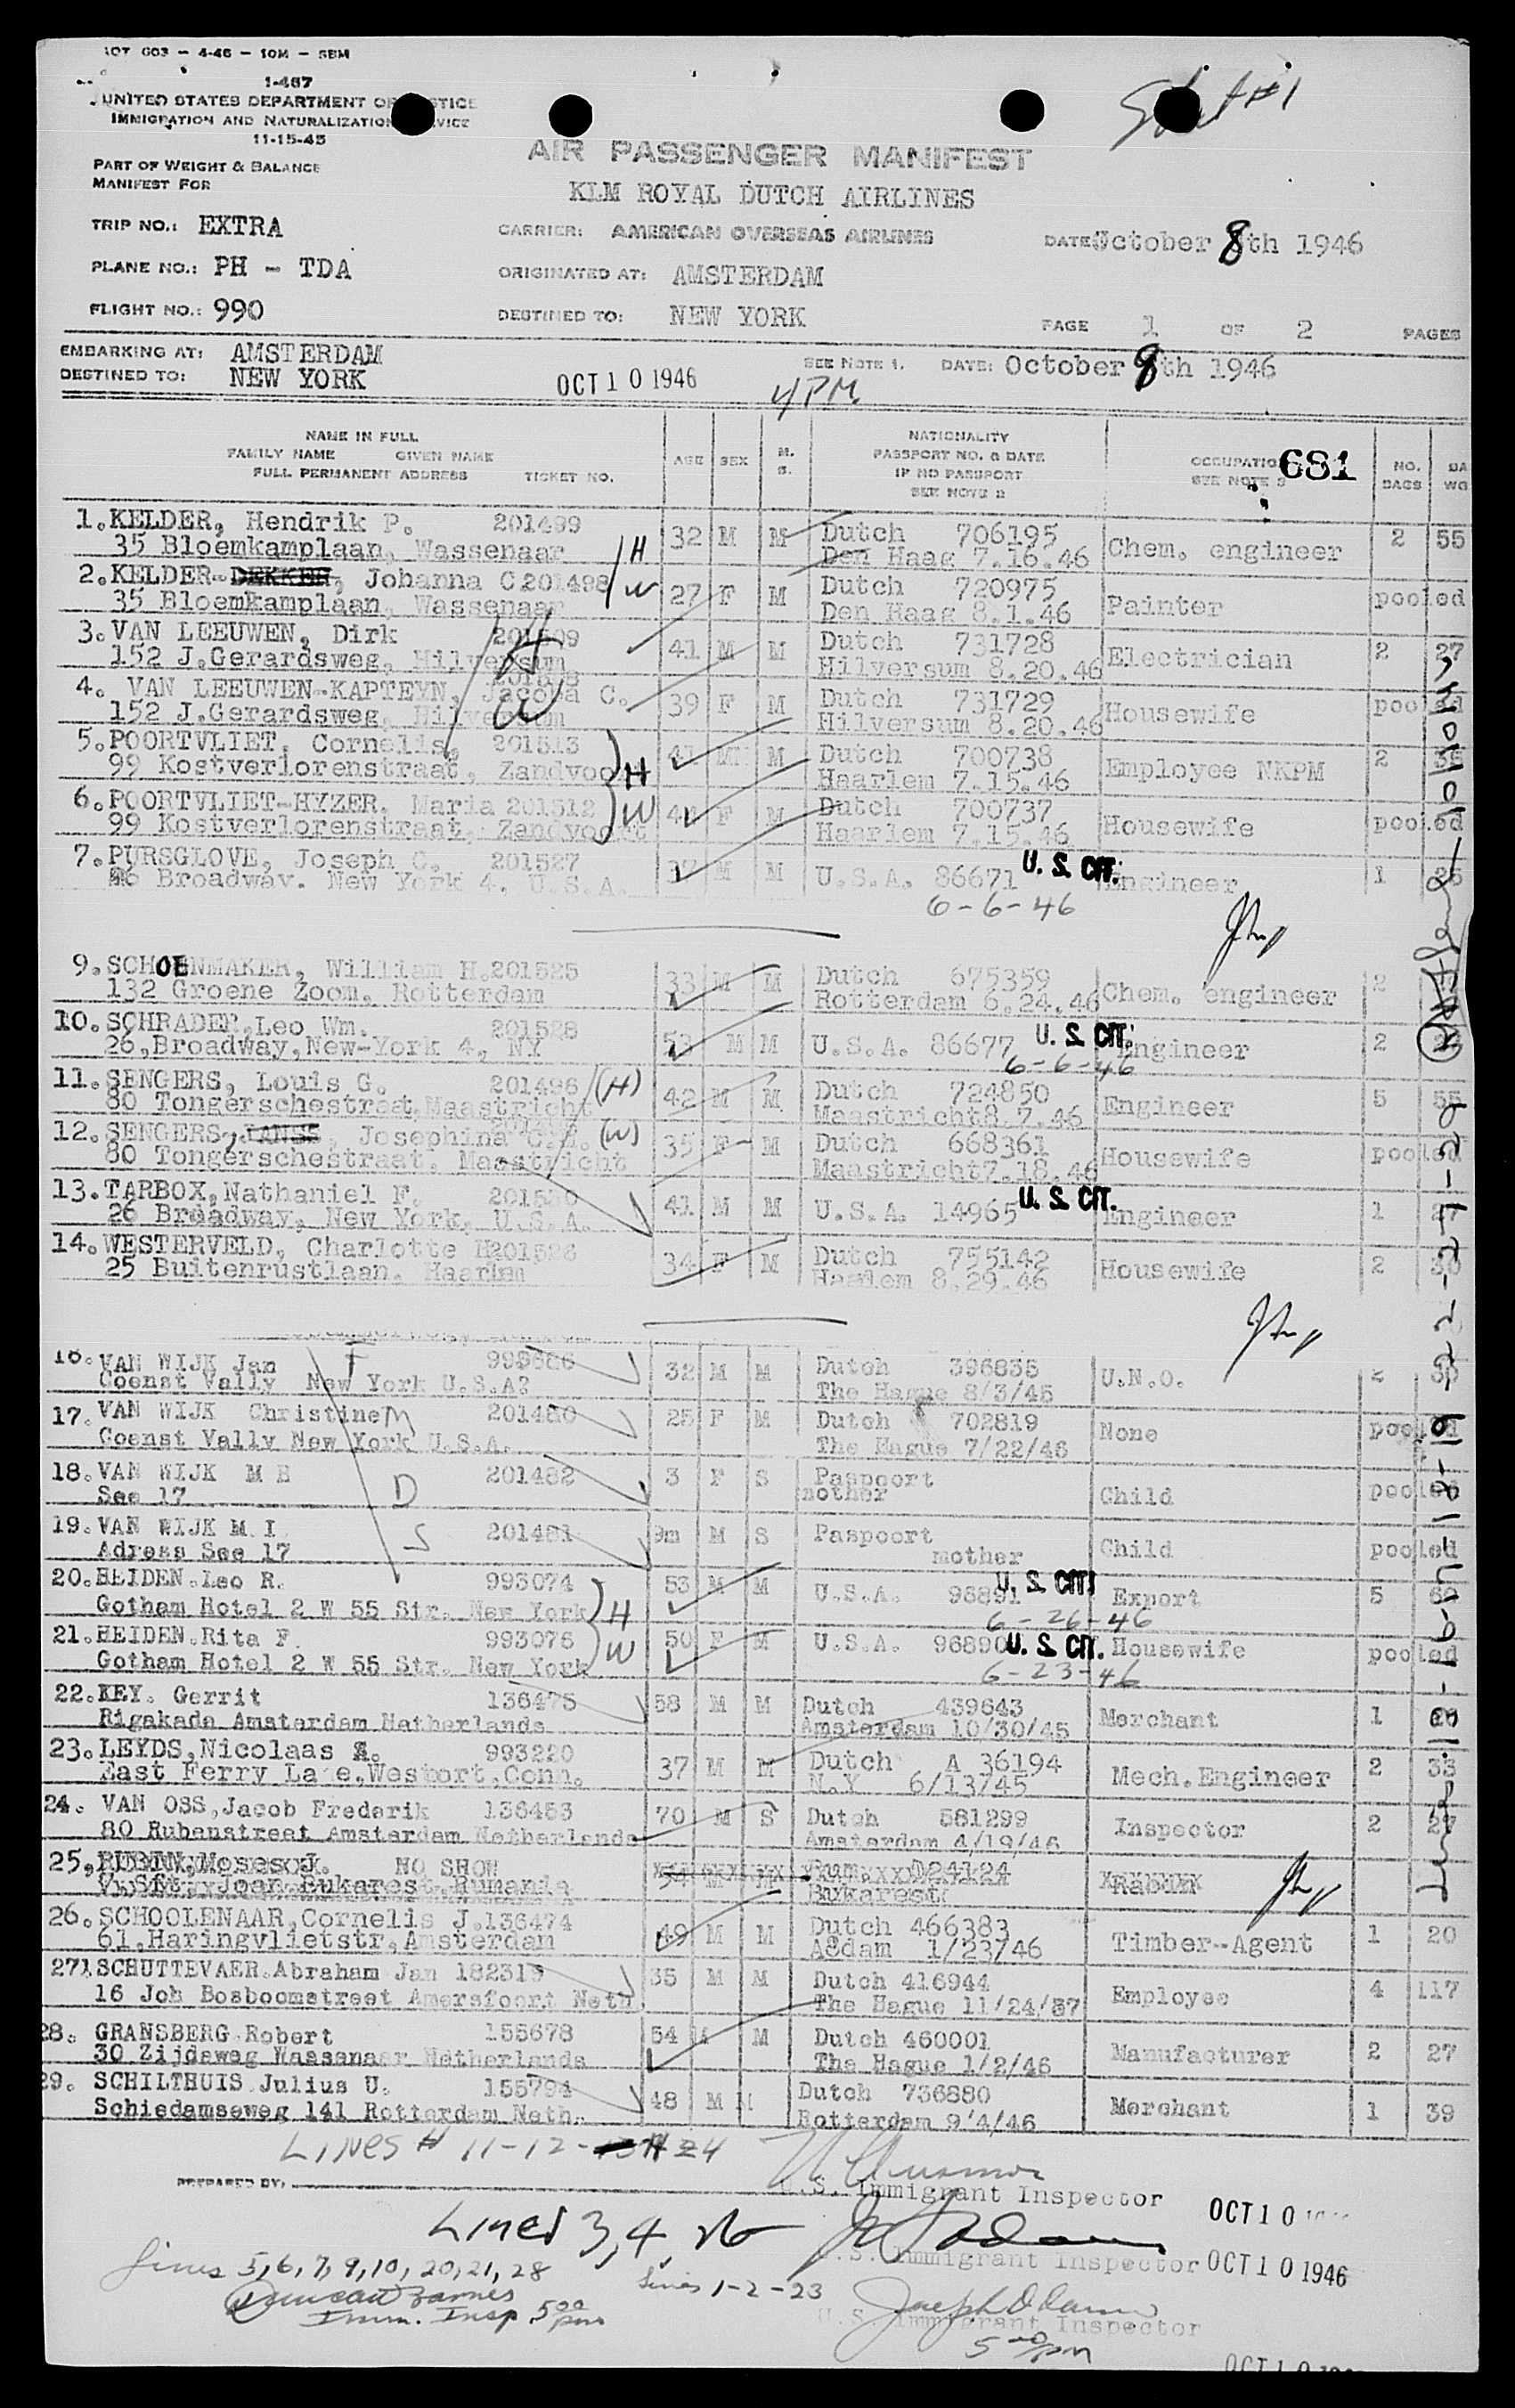 LOT 603 - 4-46 - 10M - SBM
1-467
UNITED STATES DEPARTMENT OF JUSTICE
IMMIGRATION AND NATURALIZATION SERVICE
11-15-45
Sheet #1
AIR PASSENGER MANIFEST
PART OF WEIGHT & BALANCE
MANIFEST FOR
KLM ROYAL DUTCH AIRLINES
TRIP NO.: EXTRA CARRIER: AMERICAN OVERSEAS AIRLINES DATE October 8th 1946
PLANE NO.: PH - TDA ORIGINATED AT: AMSTERDAM
FLIGHT NO.: 990 DESTINED TO: NEW YORK PAGE 1 OF 2 PAGES
EMBARKING AT: AMSTERDAM SEE NOTE 1. DATE: October 8th 1946
DESTINED TO: NEW YORK OCT 10 1946 4 PM
NAME IN FULL
FAMILY NAME GIVEN NAME
FULL PERMANENT ADDRESS TICKET NO. AGE SEX M. S. NATIONALITY PASSPORT NO. & DATE IF NO PASSPORT SEE NOTE 2 OCCUPATION SEE NOTE 3 681 NO. BAGS BA WG
1. KELDER, Hendrik P. 201499 32 M M Dutch 706195 Chem. engineer 2 55
35 Bloemkamplaan, Wassenaar H Den Haag 7.16.46
2. KELDER-DEKKER, Johanna C 201498 W 27 F M Dutch 720975 Painter pooled
35 Bloemkamplaan, Wassenaar Den Haag 8.1.46
3. VAN LEEUWEN, Dirk 201509 H 41 M M Dutch 731728 Electrician 2 27
152 J.Gerardsweg, Hilversum Hilversum 8.20.46
4. VAN LEEUWEN-KAPTEYN, Jacoba C. W 39 F M Dutch 731729 Housewife pooled
152 J.Gerardsweg, Hilversum Hilversum 8.20.46
5. POORTVLIET, Cornelis, 201513 41 M M Dutch 700738 Employee NKPM 2 35
99 Kostverlorenstraat, Zandvoort H Haarlem 7.15.46
6. POORTVLIET-HYZER, Maria 201512 W F M Dutch 700737 Housewife pooled
99 Kostverlorenstraat, Zandvoort Haarlem 7.15.46
7. PURSGLOVE, Joseph C. 201527 37 M M U.S.A. 86671 U. S. CIT. Engineer 1 25
26 Broadway. New York 4. U.S.A. 6-6-46
9. SCHOENMAKER, William H. 201525 33 M M Dutch 675359 Chem. engineer 2
132 Groene Zoom. Rotterdam Rotterdam 6.24.46
10. SCHRADER, Leo Wm. 201528 53 M M U.S.A. 86677 U. S. CIT. Engineer 2
26, Broadway, New-York 4, NY 6-6-46
11. SENGERS, Louis G. 201496 (H) 42 M M Dutch 724850 Engineer 5 55
80 Tongerschestraat, Maastricht Maastricht 8.7.46
12. SENGERS, JANSE, Josephina C.H. (W) 35 F M Dutch 668361 Housewife pooled
80 Tongerschestraat. Maastricht Maastricht 7.18.46
13. TARBOX, Nathaniel F. 201530 41 M M U.S.A. 14965 U. S. CIT. Engineer 1 27
26 Broadway, New York, U.S.A.
14. WESTERVELD, Charlotte H 201526 34 F M Dutch 755142 Housewife 2 30
25 Buitenrustlaan. Haarlem Haarlem 8.29.46
16. VAN WIJK Jan F 993686 32 M M Dutch 396835 U.N.O. 2 30
Coenst Vally New York U.S.A? The Hague 8/3/45
17. VAN WIJK Christine M 201480 25 F M Dutch 702819 None pooled
Coenst Vally New York U.S.A. The Hague 7/22/46
18. VAN WIJK M E 201482 3 F S Paspoort mother Child pooled
See 17 D
19. VAN WIJK M.I S 201481 9m M S Paspoort mother Child pooled
Adress See 17
20. HEIDEN. Leo R. 993074 53 M M U.S.A. 96891 U. S. CIT. Export 5 60
Gotham Hotel 2 W 55 Str. New York H 6-26-46
21. HEIDEN. Rita F. 993075 50 F M U.S.A. 96890 U. S. CIT. Housewife pooled
Gotham Hotel 2 W 55 Str. New York W 6-23-46
22. KEY. Gerrit 136475 58 M M Dutch 439643 Merchant 1 20
Rigakade Amsterdam Netherlands Amsterdam 10/30/45
23. LEYDS, Nicolaas A. 993220 37 M M Dutch A 36194 Mech. Engineer 2 33
East Ferry Lane, Westport, Conn. N.Y 6/13/45
24. VAN OSS, Jacob Frederik 136453 70 M S Dutch 581299 Inspector 2 27
80 Rubenstreet Amsterdam Netherlands Amsterdam 4/19/46
25. RUBIN, Moses J. NO SHOW 54 M M Rum. D24124 Rabbi
Joan Bukarest, Rumania Bukarest
26. SCHOOLENAAR, Cornelis J. 136474 49 M M Dutch 466383 Timber-Agent 1 20
61, Haringvlietstr, Amsterdam A'dam 1/23/46
27. SCHUTTEVAER. Abraham Jan 182315 35 M M Dutch 416944 Employee 4 117
16 Joh Bosboomstreet Amersfoort Neth. The Hague 11/24/37
28. GRANSBERG Robert 155678 54 M M Dutch 460001 Manufacturer 2 27
30 Zijdeweg Wassenaar Netherlands The Hague 1/2/46
29. SCHILTHUIS Julius U. 155794 48 M M Dutch 736880 Merchant 1 39
Schiedamseweg 141 Rotterdam Neth. Rotterdam 9/4/46
LINES # 11-12-13 # 24
PREPARED BY. U.S. Immigrant Inspector OCT 10
Lines 3, 4, 26
U.S. Immigrant Inspector OCT 10 1946
Lines 5, 6, 7, 9, 10, 20, 21, 28 Lines 1-2-23
Duncan Barnes
Imm. Insp 5 00 pm U.S. Immigrant Inspector
5 00 pm
OCT 10